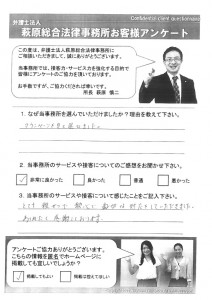 Confidential client questionnaire
弁護士法人
萩原総合法律事務所お客様アンケート
この度は、弁護士法人萩原総合法律事務所に
ご相談いただきまして、誠にありがとうございます。
本事務所では、接客・サービス力を強化する目的で
皆様にアンケートのご協力を頂いております。
お手数ですが、ご協力くださいれば幸いです。
所長 萩原 慎二
1. なぜ当事務所を選んでいただけましたか?理由を教えて下さい。
2. 当事務所のサービスや接客についてのご感想をお聞かせ下さい。
非常に良かった
良かった
普通
悪かった
3. 当事務所のサービスや接客について感じたことをご記入下さい。
アンケートご協力ありがとうございます。
こちらの情報を匿名でホームページに
掲載しても宜しいでしょうか?
掲載してもよい
掲載は控えてほしい